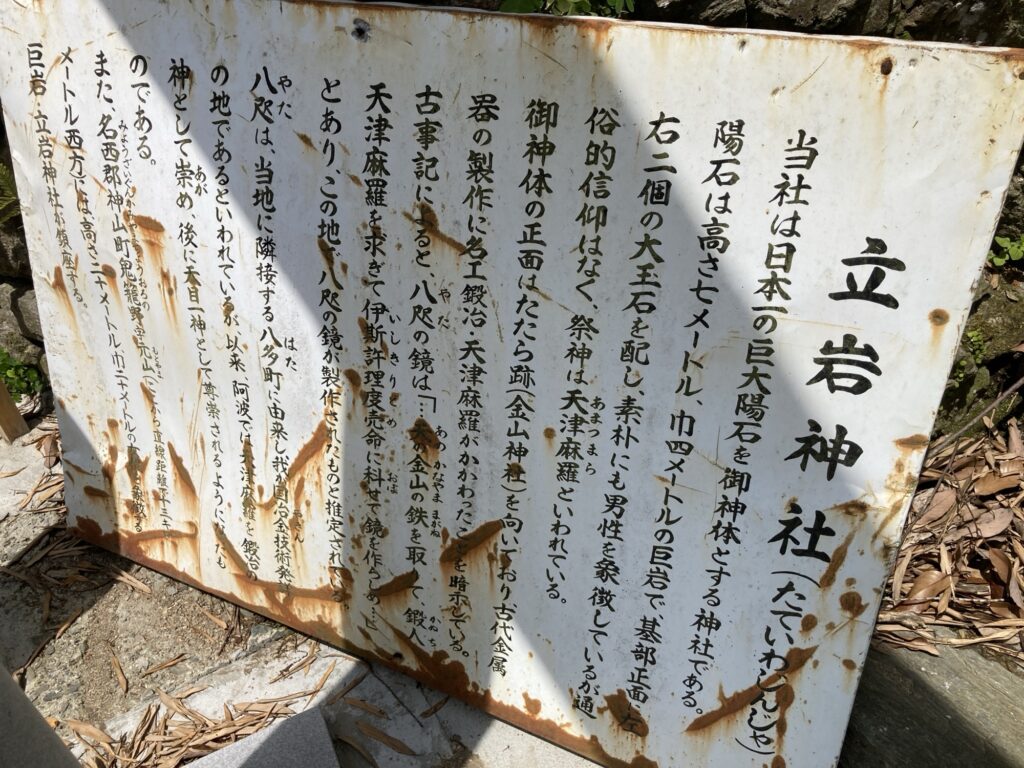 立岩神社(たていわじんじゃ)
当社は日本一の巨大陽石を御神体とする神社である。
陽石は高さ七メートル、巾四メートルの巨岩で、基部正面、左
右二個の大王石を配し、素朴にも男性を象徴しているが通
俗的信仰はなく、祭神は天津麻羅といわれている。
あまつまら
御神体の正面はたたら跡(金山神社)を向いており古代金属
器の製作に名工鍛冶、天津麻羅がかかわったことを暗示している。
古事記によると、八咫の鏡は「…金山の鉄を取て鍛人
やた あめ かなやま まがね かぬち
天津麻羅を求ぎて伊斯許理度売命に科せて鏡を作らしむ」
いしきりどめ おお
とあり、この地で八咫の鏡が製作されたものと推定されて
八咫は、当地に隣接する八多町に由来し我が国冶金技術発
やた はた
の地であるといわれているが、以来、阿波では天津麻羅を鍛冶の
神として崇め、後に天目一神として尊崇されるようになったも
あが
のである。
また、名西郡神山町鬼籠野字元山(ここから直線距離で十二キロ
メートル西方)には高さ二十メートル巾二十メートルの
巨岩、立岩神社が鎮座する。